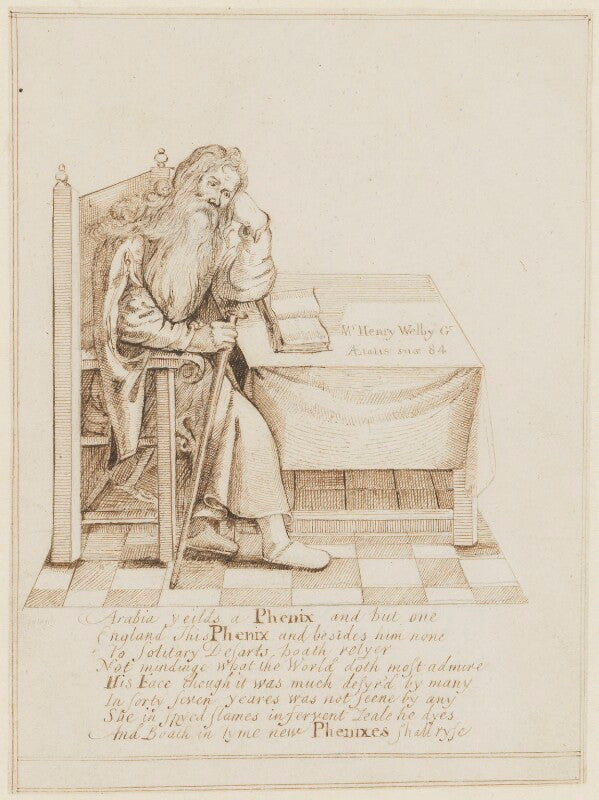 Mr Henry Welby Gt
Ætatis suæ 84
Arabia yeilds a Phenix and but one
England This Phenix and besides him none
To solitary Desarts boath
Not mindinge what the World doth most admire
His Face though it was much desyr'd by many
In forty seven yeares was not seene by any
She in flames in fervent he dyes
And Boath in tyme new Phenixes shall ryse